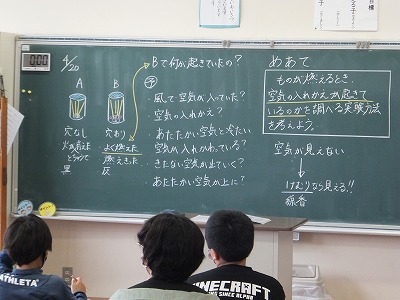 4/20
A
B
穴なし
火が消えた
黒
穴あり
よく燃えた
燃えきった
灰
Bで何が起きていたの?
予
・風で空気が入っていた?
・空気の入れかえ?
・あたたかい空気と冷たい
空気が入れかわっている?
・きたない空気が出ていく?
・あたたかい空気が上に?
めあて
ものが燃えるとき、
空気の入れかえが起きて
いるのかを調べる実験方法
を考えよう。
空気が見えない
けむりなら見える!!
線香
ATHLETA
MINECRAFT